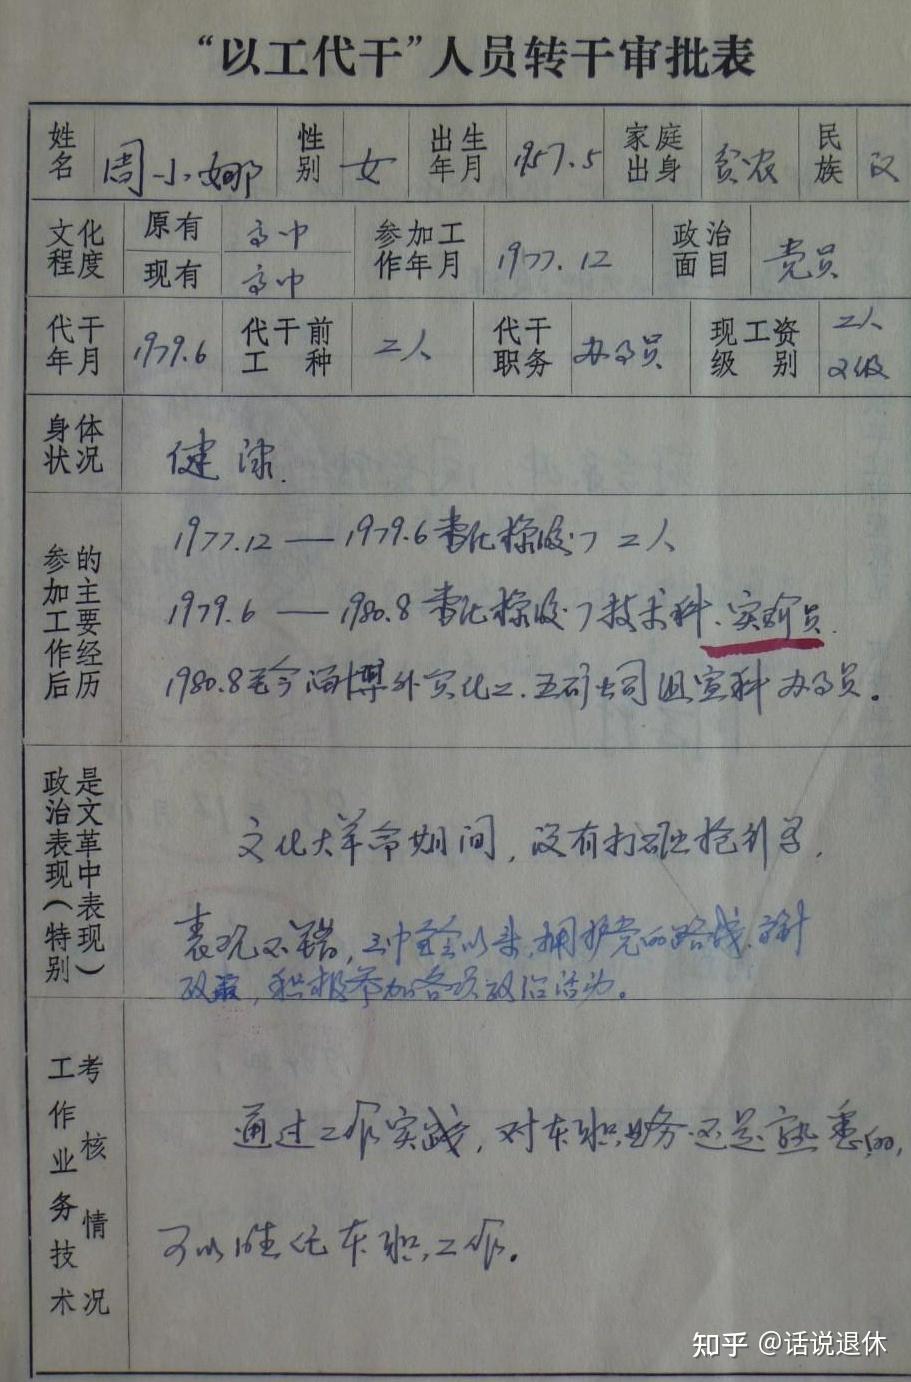 “以工代干”人员转干审批表
姓名 周小娜 性别 女 出生年月 1957.5 家庭出身 贫农 民族 汉
文化程度 原有 高中 参加工作年月 1977.12 政治面目 党员
现有 高中
代干年月 1979.6 代干前工种 工人 代干职务 办事员 现工资级别 工人2级
身体状况 健康.
参加工作后的主要经历
1977.12 — 1979.6 橡胶厂工人
1979.6 — 1980.8 橡胶厂技术科.实验员.
1980.8至今淄博外贸化工.五矿公司 科办事员。
政治表现(特别是文革中表现)
文化大革命期间,没有打砸抢引号,
表现不错,三中全会以来,拥护党的路线、方针
政策,积极参加各项政治活动。
工作业务技术考核情况
通过工作实践,对本职业务还是熟悉的,
可以胜任本职工作。
知乎 @话说退休